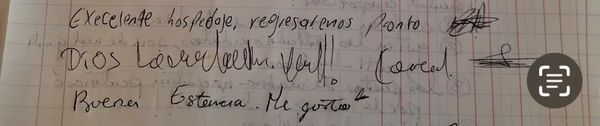 Execelente hospedaje, regresaremos pronto
Dios
Buena Estancia. Me gusto